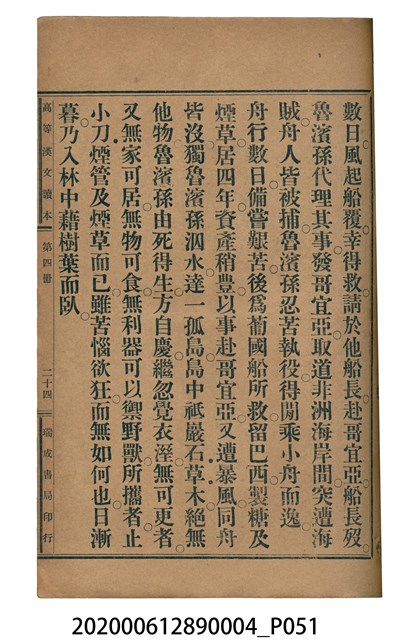 數日風起船覆幸得救請於他船長赴哥宜亞船長歿
魯濱孫代理其事發哥宜亞取道非洲海岸間突遭海
賊舟人皆被捕魯濱孫忍苦執役得閒乘小舟而逸
舟行數日備嘗艱苦後爲葡國船所救留巴西製糖及
煙草居四年資產稍豐以事赴哥宜亞又遭暴風同舟
皆沒獨魯濱孫泅水達一孤島島中祇巖石草木絕無
他物魯濱孫由死得生方自慶繼忽覺衣溼無可更者
又無家可居無物可食無利器可以禦野獸所攜者止
小刀煙管及煙草而已雖苦惱欲狂而無如何也日漸
暮乃入林中藉樹葉而臥
高等漢文讀本 第四册 二十四 瑞成書局印行
202000612890004_P051